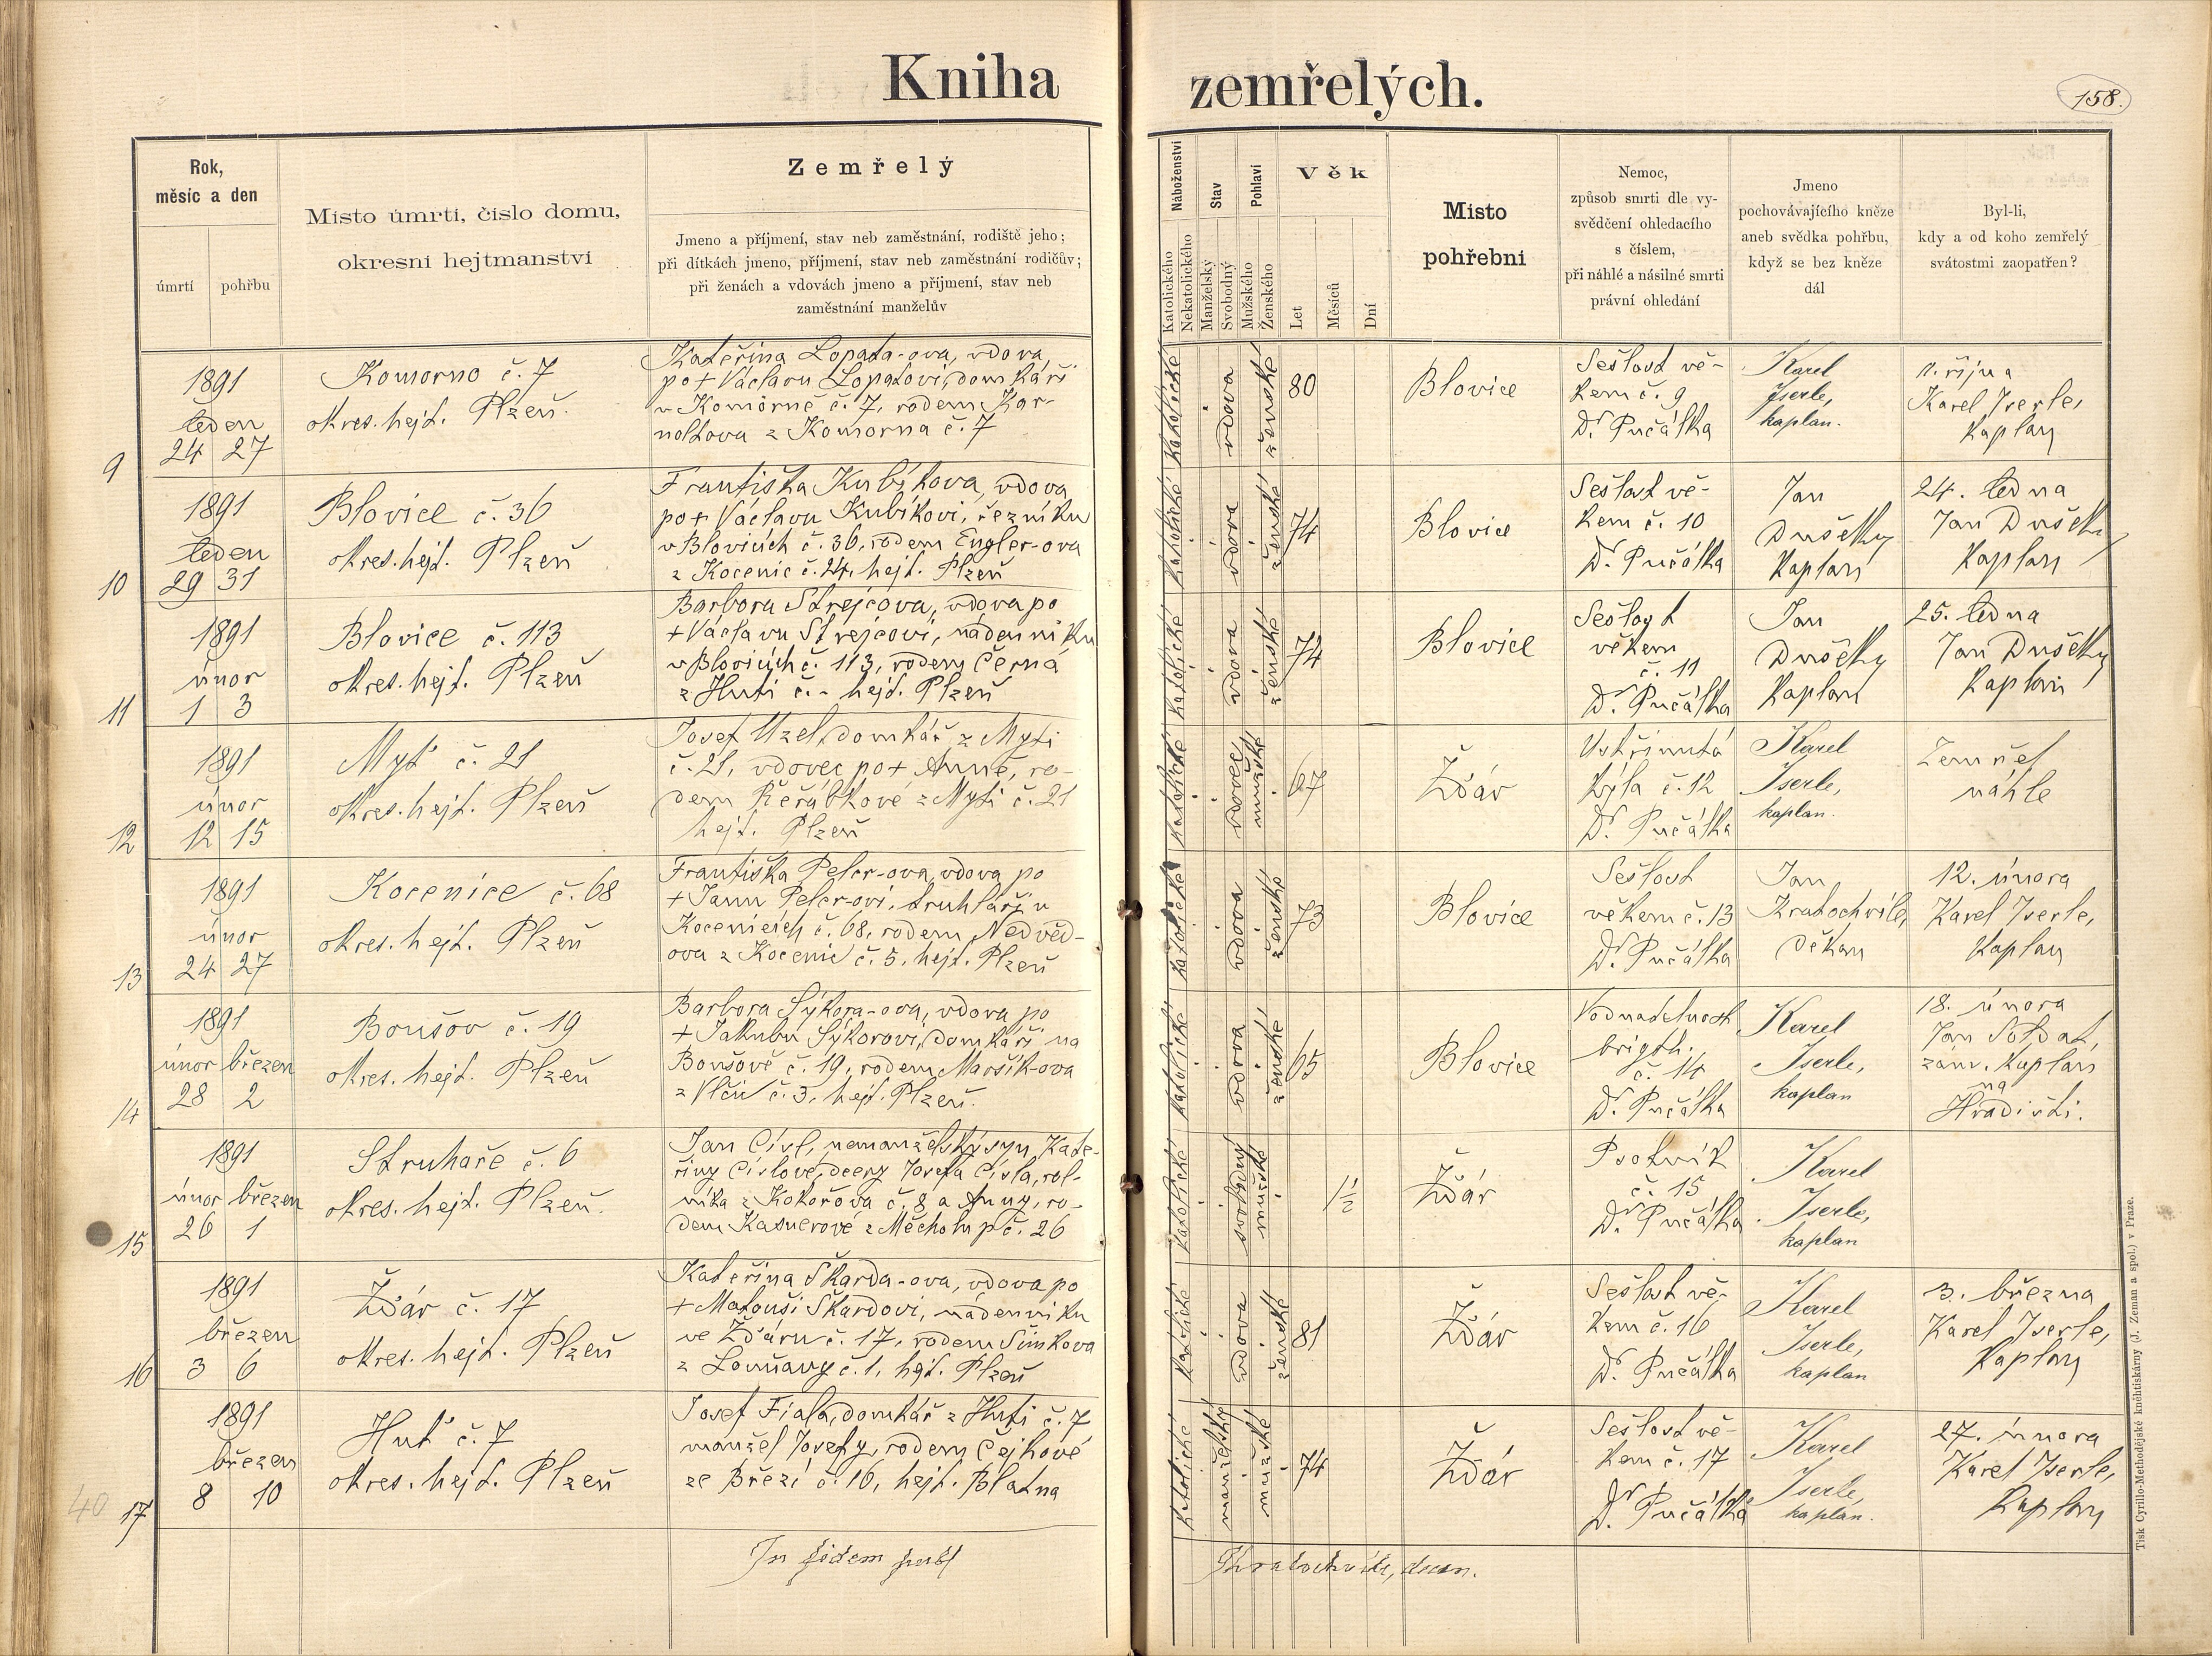 Kniha zemřelých.
158.
Rok,
měsíc a den
úmrtí
pohřbu
Místo úmrtí, číslo domu,
okresní hejtmanství
Zemřelý
Jmeno a příjmení, stav neb zaměstnání, rodiště jeho;
při dítkách jmeno, příjmení, stav neb zaměstnání rodičův;
při ženách a vdovách jmeno a příjmení, stav neb
zaměstnání manželův
Náboženství
Katolického
Nekatolického
Stav
Manželský
Svobodný
Pohlaví
Mužského
Ženského
Věk
Let
Měsíců
Dní
Místo
pohřební
Nemoc,
způsob smrti dle vy-
svědčení ohledacího
s číslem,
při náhlé a násilné smrti
právní ohledání
Jmeno
pochovávajícího kněze
aneb svědka pohřbu,
když se bez kněze
dál
Byl-li,
kdy a od koho zemřelý
svátostmi zaopatřen?
9
1891
leden
24 27
Komorno č. 7
okres. hejt. Plzeň.
Kateřina Lopata-ova, vdova
po + Václavu Lopatovi, domkáři
v Komorně č. 7, rodem Kar-
noltova z Komorna č. 7
katolické
vdova
ženské
80
Blovice
Sešlost vě-
kem č. 9
Dr. Pučálka
Karel
Iserle,
kaplan.
11. října
Karel Iserle,
kaplan
10
1891
leden
29 31
Blovice č. 36
okres. hejt. Plzeň
Františka Kubíkova, vdova
po + Václavu Kubíkovi, řezníku
v Blovicích č. 36, rodem Engler-ova
z Kocenic č. 24, hejt. Plzeň
katolické
vdova
ženské
74
Blovice
Sešlost vě-
kem č. 10
Dr. Pučálka
Jan
Dušek
kaplan
24. ledna
Jan Dušek
kaplan
11
1891
únor
1 3
Blovice č. 113
okres. hejt. Plzeň
Barbora Strejcova, vdova po
+ Václavu Strejcovi, nádenníku
v Blovicích č. 113, rodem Černá
z Huti č. - hejt. Plzeň
katolické
vdova
ženské
74
Blovice
Sešlost
věkem
č. 11
Dr. Pučálka
Jan
Dušek
kaplan
25. ledna
Jan Dušek
kaplan
12
1891
únor
12 15
Myť č. 21
okres. hejt. Plzeň
Josef Uzel, domkář z Myti
č. 21, vdovec po + Anně, ro-
dem Řeřábkové z Myti č. 21
hejt. Plzeň
katolické
vdovec
mužské
67
Žďár
Uskřinutá
kýla č. 12
Dr. Pučálka
Karel
Iserle,
kaplan.
Zemřel
náhle
13
1891
únor
24 27
Kocenice č. 68
okres. hejt. Plzeň
Františka Peler-ova, vdova po
+ Janu Peler-ovi, truhláři v
Kocenicích č. 68, rodem Nedvěd-
ova z Kocenic č. 5, hejt. Plzeň
katolické
vdova
ženské
73
Blovice
Sešlost
věkem č. 13
Dr. Pučálka
Jan
Kratochvíle,
děkan
12. února
Karel Iserle,
kaplan
14
1891
únor březen
28 2
Boušov č. 19
okres. hejt. Plzeň
Barbora Sýkora-ova, vdova po
+ Jakubu Sýkorovi, domkáři na
Boušově č. 19, rodem Maršík-ova
z Vlčic č. 3, hejt. Plzeň.
katolické
vdova
ženské
65
Blovice
Vodnatelnost
brigth.
č. 14
Dr. Pučálka
Karel
Iserle,
kaplan
18. února
Jan Soldat,
zám. kaplan
na
Hradišti.
15
1891
únor březen
26 1
Struhaře č. 6
okres. hejt. Plzeň.
Jan Císl, nemanželský syn, Kate-
řiny Císlové, dcery Josefa Císla, rol-
níka z Kokořova č. 8 a Anny, ro-
dem Kasnerové z Měcholup č. 26
katolické
svobodný
mužské
1/2
Žďár
Psotník
č. 15
Dr. Pučálka
Karel
Iserle,
kaplan
16
1891
březen
3 6
Žďár č. 17
okres. hejt. Plzeň
Kateřina Škarda-ova, vdova po
+ Matouši Škardovi, nádenníku
ve Žďáru č. 17, rodem Šimkova
z Louňavy č. 1, hejt. Plzeň
katolické
vdova
ženské
81
Žďár
Sešlost vě-
kem č. 16
Dr. Pučálka
Karel
Iserle,
kaplan
3. března
Karel Iserle,
kaplan
40
17
1891
březen
8 10
Huť č. 7
okres. hejt. Plzeň
Josef Fiala, domkář z Huti č. 7
manžel Josefy, rodem Čejkové
ze Březí č. 16, hejt. Blatna
katolické
manželský
mužské
74
Žďár
Sešlost vě-
kem č. 17
Dr. Pučálka
Karel
Iserle,
kaplan.
27. února
Karel Iserle,
kaplan
In fidem publ
Kratochvíle, decan.
Tisk Cyrillo-Methodějské knihtiskárny (J. Zeman a spol.) v Praze.